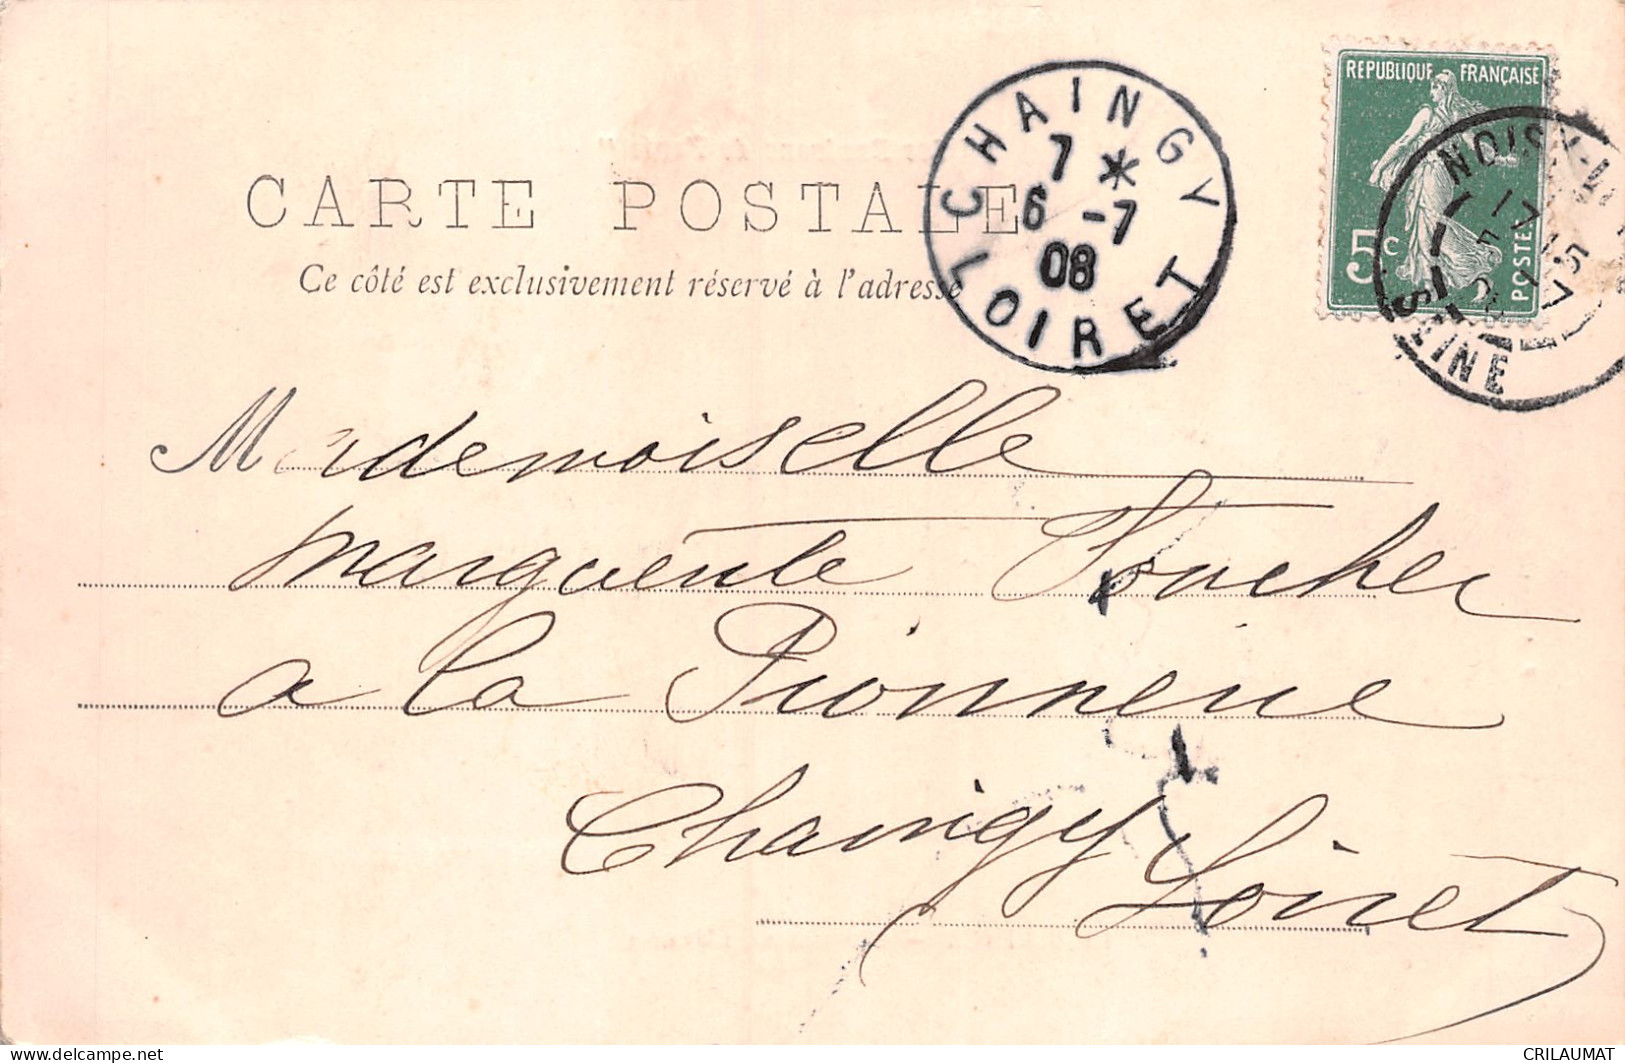 REPUBLIQUE FRANÇAISE
5c
POSTES
CHAINGY
7 *
6 -7
08
LOIRET
NOISY
SEINE
CARTE POSTALE
Ce côté est exclusivement réservé à l'adresse
Mademoiselle
Marguerite Foucher
a la Pionnerie
Chaingy Loiret
delcampe.net
CRILAUMAT